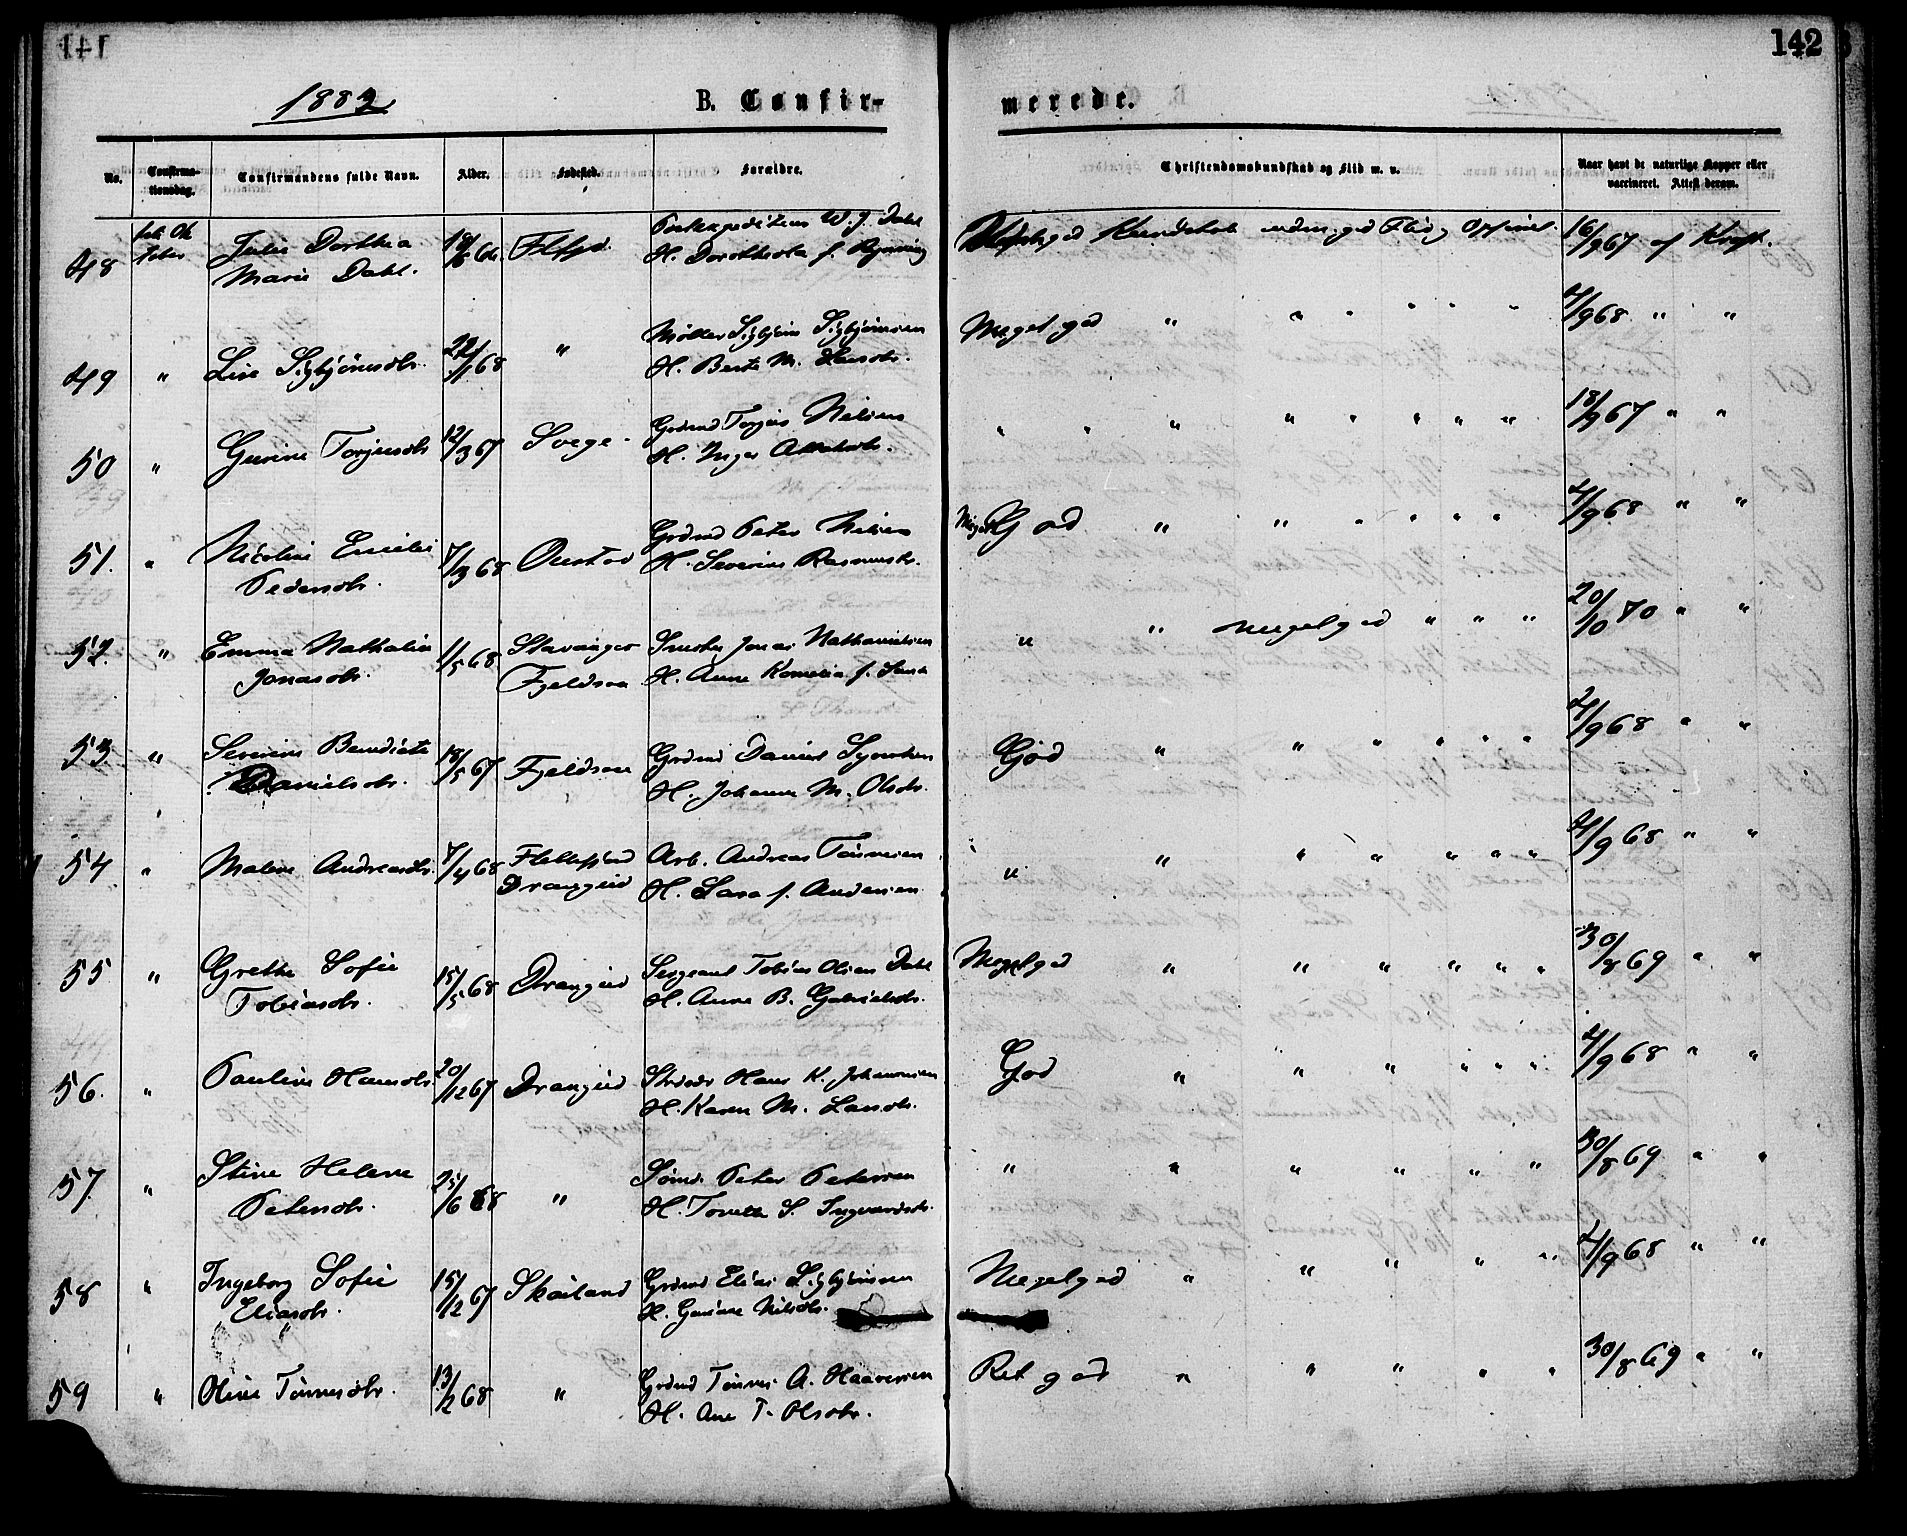 142
1882
B. Confir-
merede.
No.
Confirma-
tionsdag.
Confirmandens fulde Navn.
Alder.
Fødested.
Forældre.
Christendomskundskab og Flid m. v.
Naar havt de naturlige Kopper eller
vaccineret. Attest derom.
48
Julie Dorthea
Marie Dahl.
W. J. Dahl
H. Dorothea f.
Kundskab
16/9 67 af Kraft.
49 "
Lise Sigbjørnsdtr.
22/1 68
"
Møller Sigbjørn Sigbjørnsen
H. Berte M. Larsdtr.
Meget god " " " " " "
4/9 68 " "
50 "
Gurine Torjusdtr
12/3 67
Svege
Grdmd Torjus Nilsen
H. Inger
" " " " " " " "
18/9 67 " "
51. "
Nicoline Emilie
Pedersdtr.
7/3 68
Grdmd Peter Nilsen
H. Severine Rasmusdtr.
Meget God " " " " " "
4/9 68 " "
52. "
Emma Nathalie
Jonasdtr.
1/5 68
Stavanger
Fjeldsaa
Jonas Nathanielsen
H. Anne Kornelia f.
" " meget god " " "
20/10 70 " "
53 "
Severine Benedicte
Danielsdtr.
18/5 67
Fjeldsaa
Grdmd Daniel
H. Johanne M. Olsdtr.
God " " " " " "
4/9 68 " "
54 "
Malene Andreasdtr.
7/4 68
Flekkefjord
Drangeid
Arb. Andreas Tønnesen
H. Sara f. Andersen
" " " " " " "
4/9 68 " "
55 "
Grethe Sofie
Tobiasdtr.
15/5 68
Drangeid
Sergeant Tobias Olsen Dahl
H. Anne B. Gabrielsdtr.
Meget god " " " " " "
30/8 69 " "
56. "
Pauline Hansdtr
20/12 67
Drangeid
Hans K. Johannesen
H. Karen M. Larsdtr.
God " " " " " "
4/9 68 " "
57. "
Stine Helene
Petersdtr.
25/6 68
"
Sømd. Peter Petersen
H. Tonette S. Ingvardsdtr.
" " " " " "
30/8 69 " "
58 "
Ingeborg Sofie
Eliasdtr.
15/12 67
Skailand
Grdmd Elias Sigbjørnsen
H. Gurine Nilsdtr.
Meget god " " " " "
4/9 68 " "
59 "
Oline Tønnesdtr.
13/2 68
"
Grdmd Tønnes A. Haaversen
H. Ane T. Olsdtr.
Ret god " " " " "
30/8 69 " "